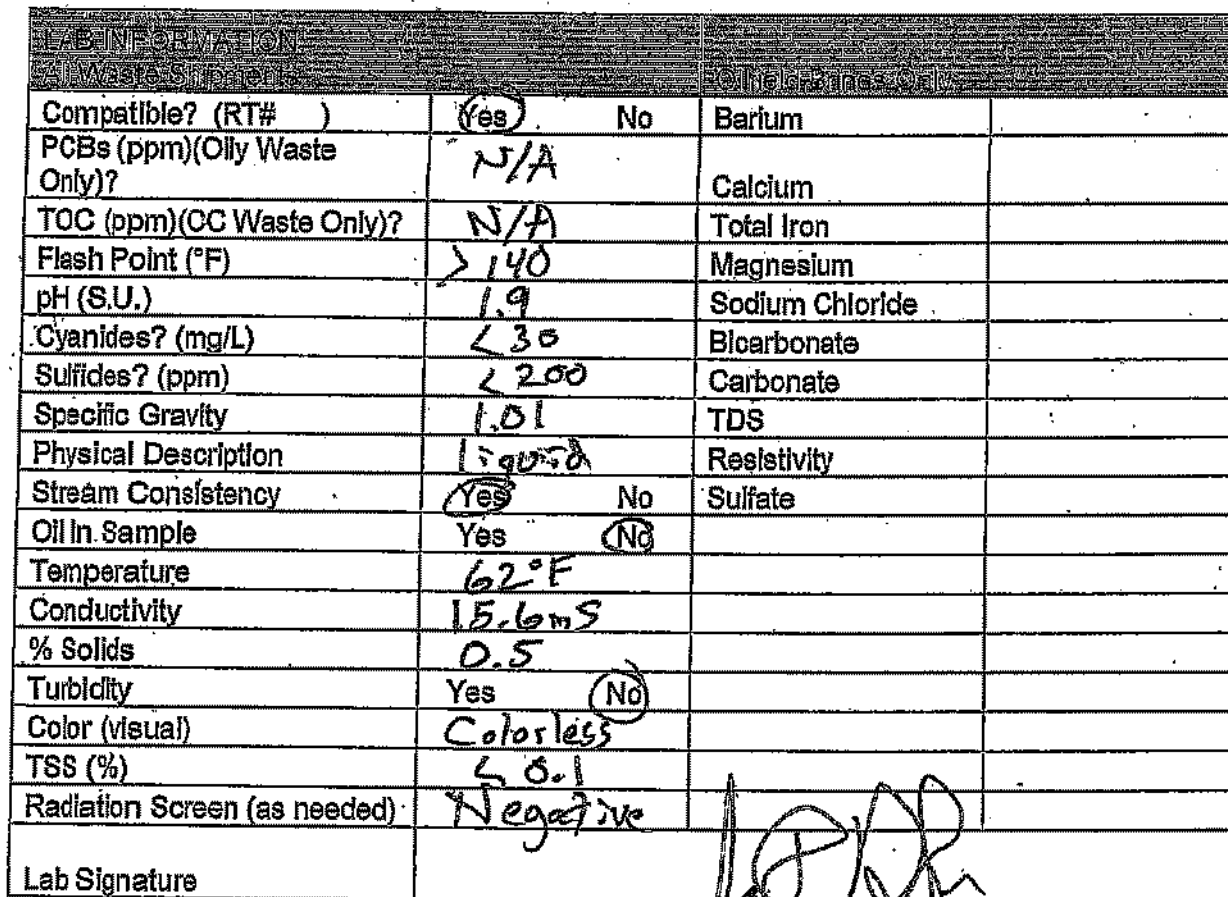 LAB INFORMATION
All Waste Shipments Oilfield Brines Only
Compatible? (RT# ) Yes No Barium
PCBs (ppm)(Oily Waste
Only)? N/A Calcium
TOC (ppm)(CC Waste Only)? N/A Total Iron
Flash Point (°F) >140 Magnesium
pH (S.U.) 1.9 Sodium Chloride
Cyanides? (mg/L) <30 Bicarbonate
Sulfides? (ppm) <200 Carbonate
Specific Gravity 1.01 TDS
Physical Description liquid Resistivity
Stream Consistency Yes No Sulfate
Oil In Sample Yes No
Temperature 62°F
Conductivity 15.6mS
% Solids 0.5
Turbidity Yes No
Color (visual) Colorless
TSS (%) <0.1
Radiation Screen (as needed) Negative
Lab Signature